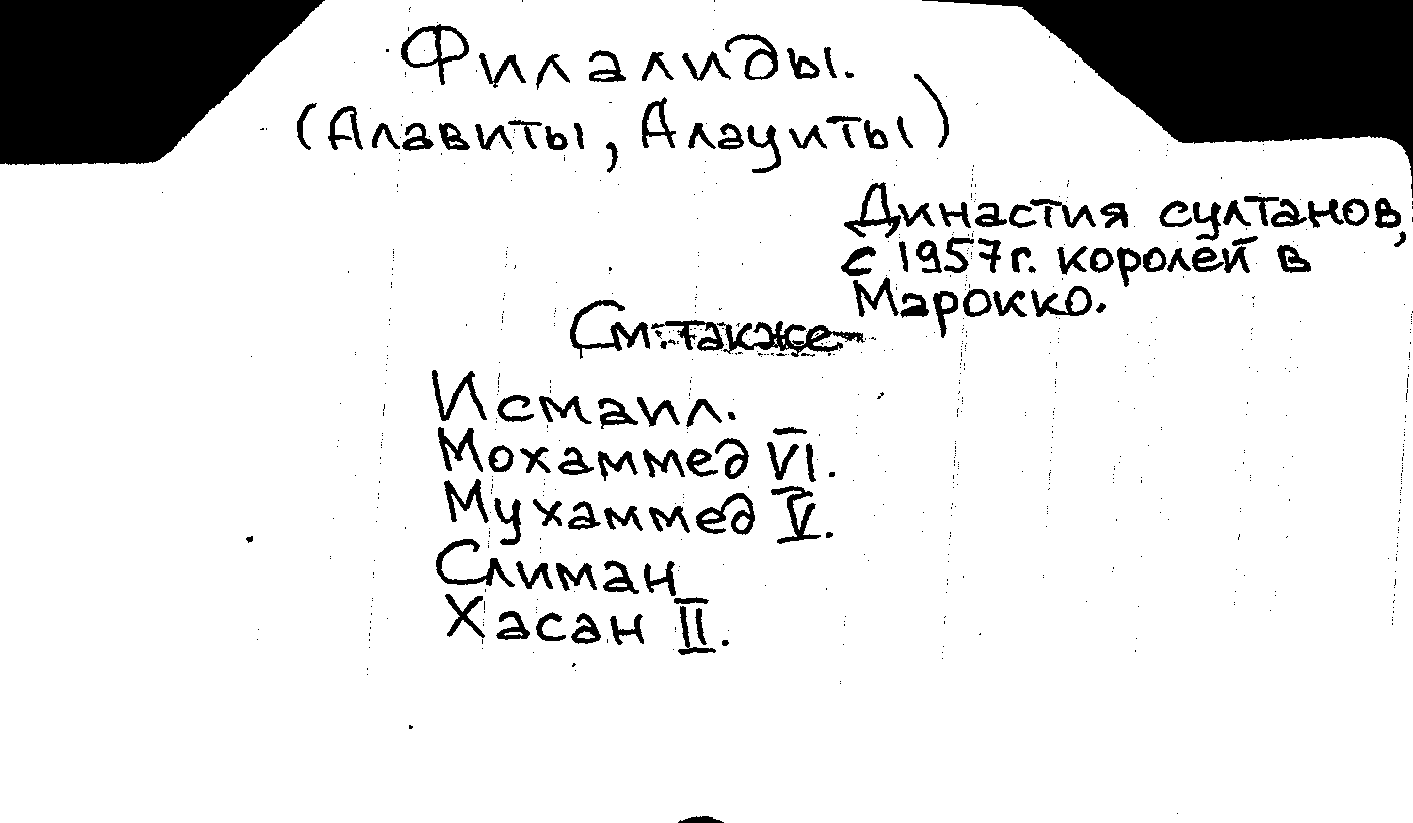 Филалиды.
(Алавиты, Алауиты)
Династия султанов,
с 1957г. королей в
Марокко.
См. также
Исмаил.
Мохаммед VI.
Мухаммед V.
Слиман
Хасан II.